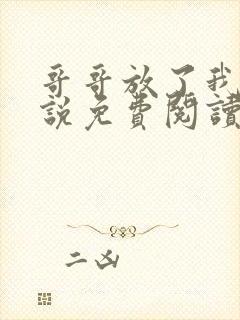 哥哥放了我
説免費閱讀
二凶